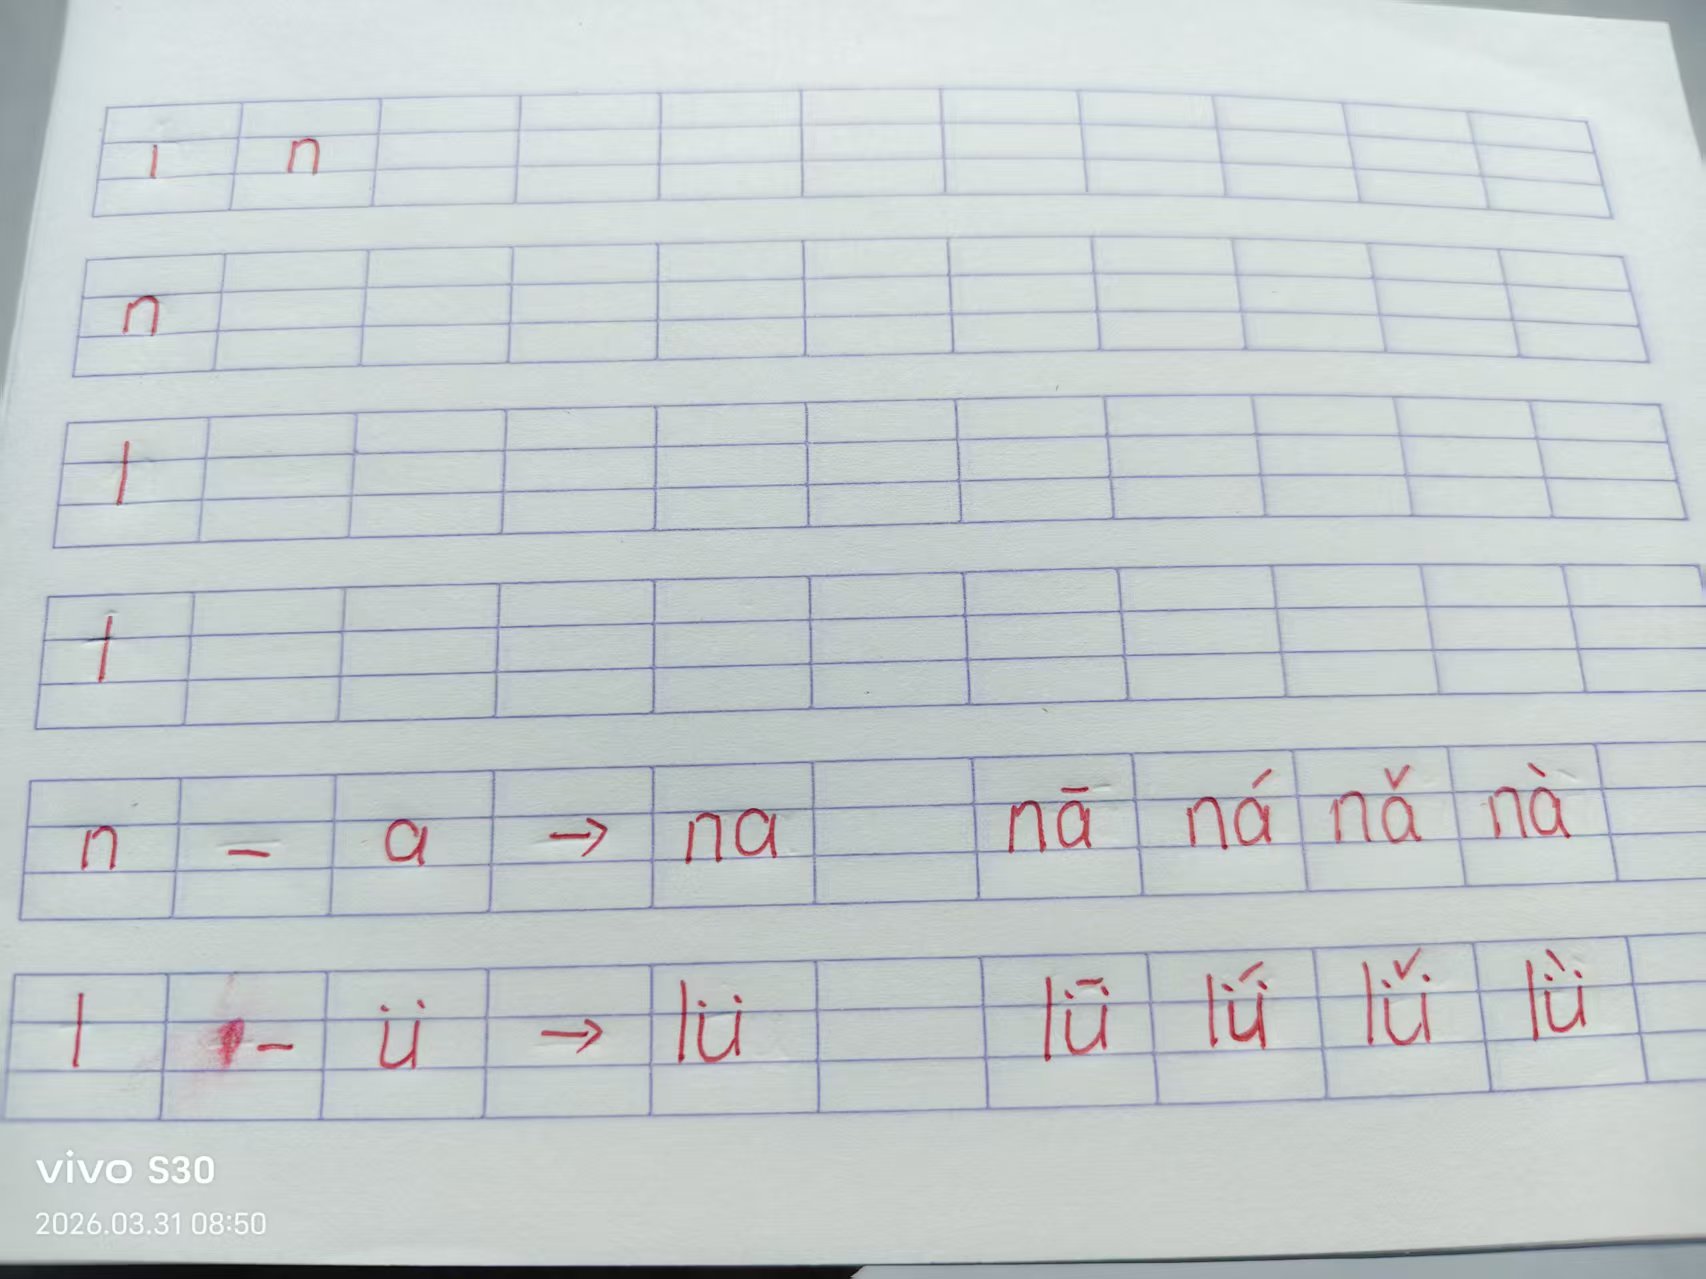 ı n
n
l
l
n - a → na nā ná nǎ nà
l - ü → lü lǖ lǘ lǚ lǜ
vivo S30
2026.03.31 08:50